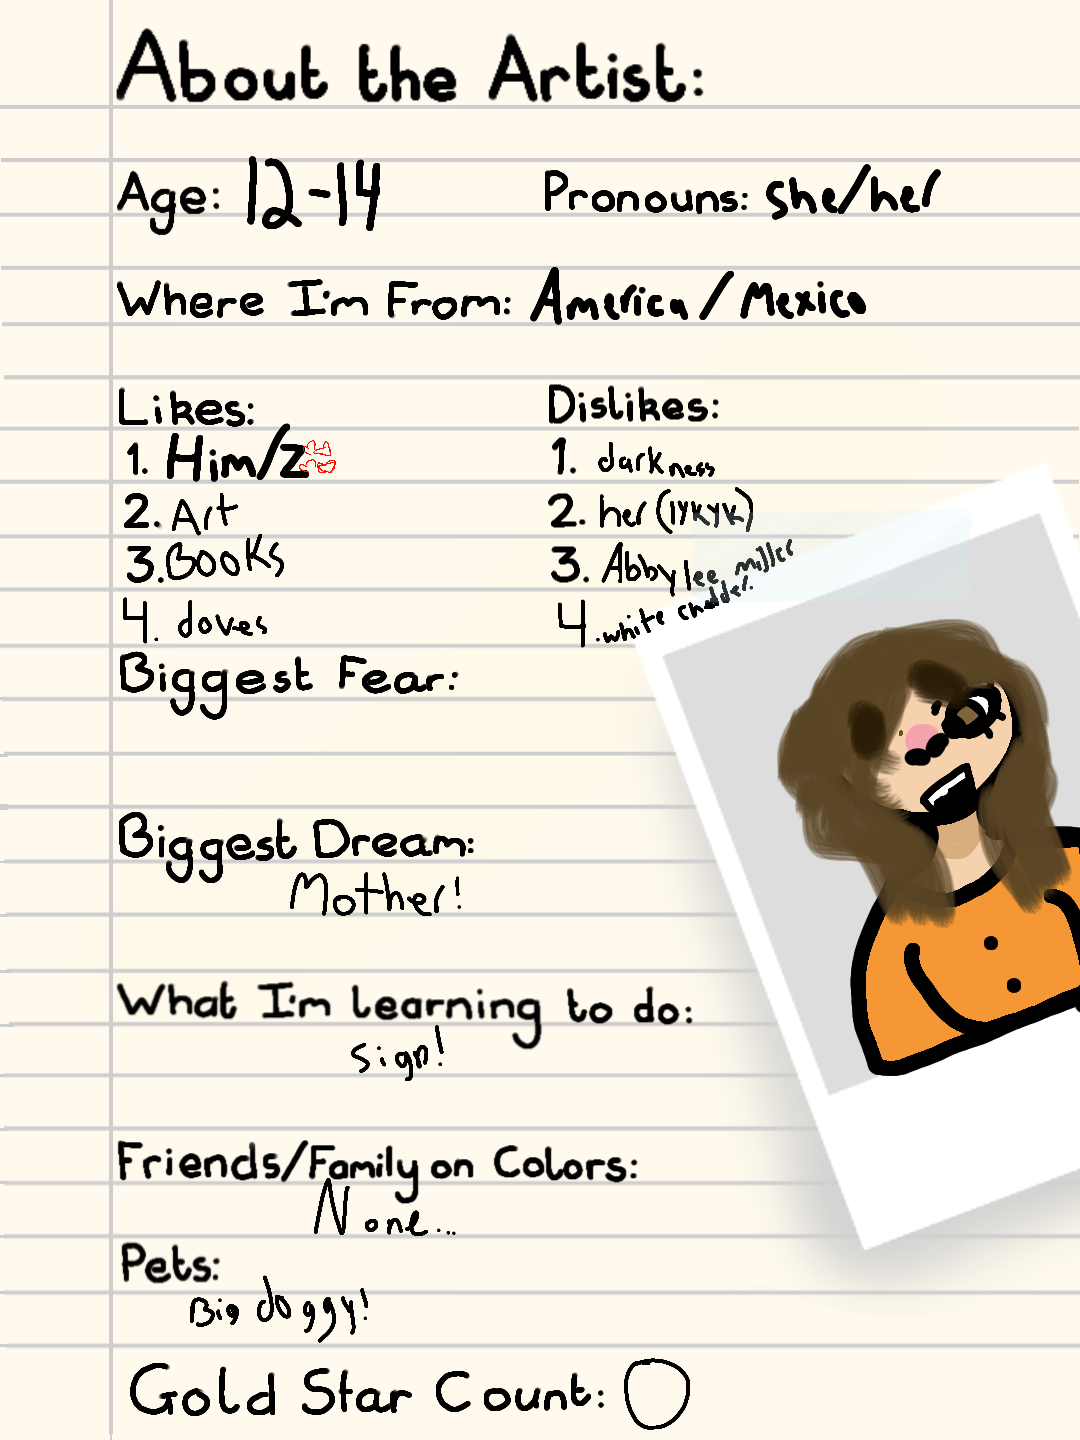 About the Artist:
Age: 12-14 Pronouns: she/her
Where I'm From: America / Mexico
Likes: Dislikes:
1. Him/Z 1. darkness
2. Art 2. her (IYKYK)
3. Books 3. Abby lee miller
4. doves 4. white chedder
Biggest Fear:
Biggest Dream:
Mother!
What I'm learning to do:
Sign!
Friends/Family on Colors:
None...
Pets:
Big doggy!
Gold Star Count: 0